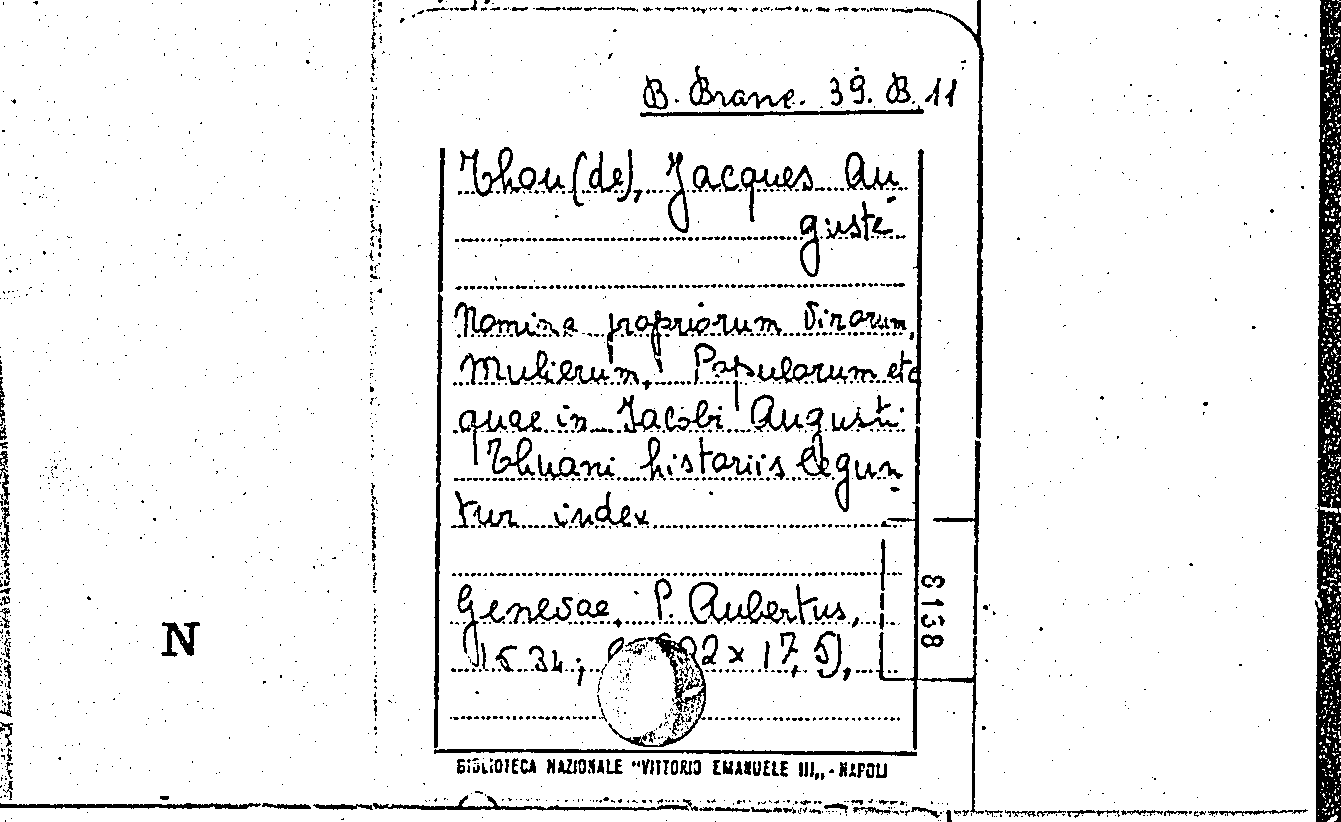 B. Branc. 39. B. 11
Thou (de), Jacques Au
guste
Nomina propriorum Virorum,
Mulierum, Populorum etc
quae in Jacobi Augusti
Thuani historiis legun
tur index
Genevae, P. Aubertus,
1634; 2 x 17,5),
8138
N
BIBLIOTECA NAZIONALE "VITTORIO EMANUELE III„ - NAPOLI